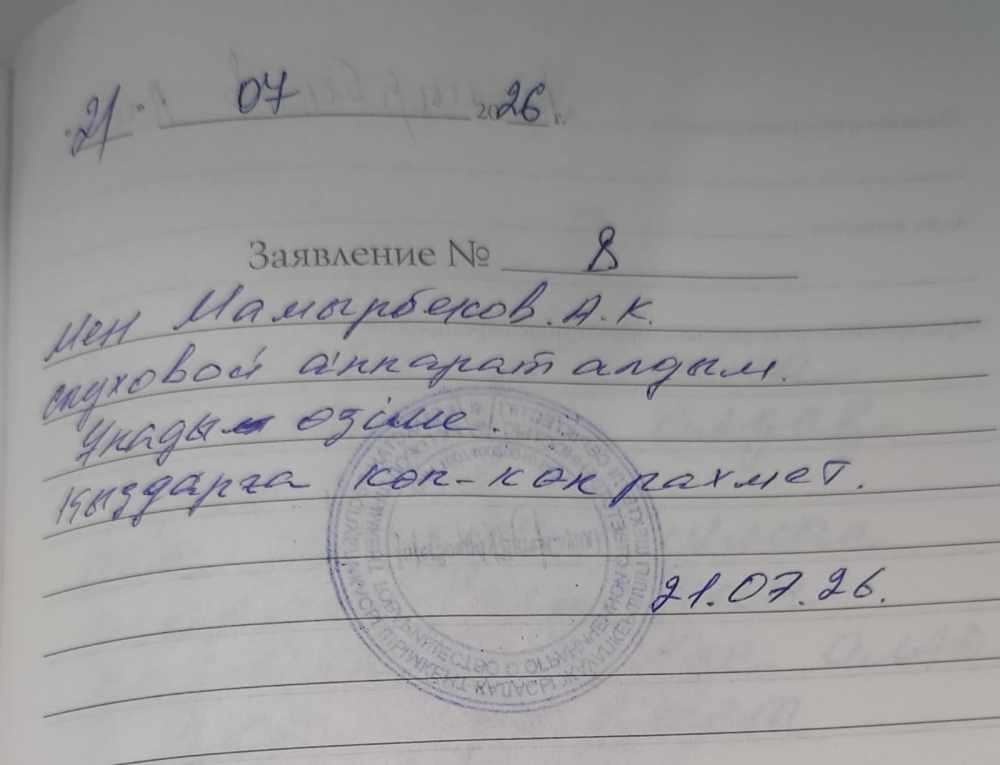 "21" 07 2026 г.
Заявление № 8
Мен Мамырбеков. А. К.
слуховой аппарат алдым.
Ұнады өзіме.
Қыздарға көп-көп рахмет.
21.07.26.